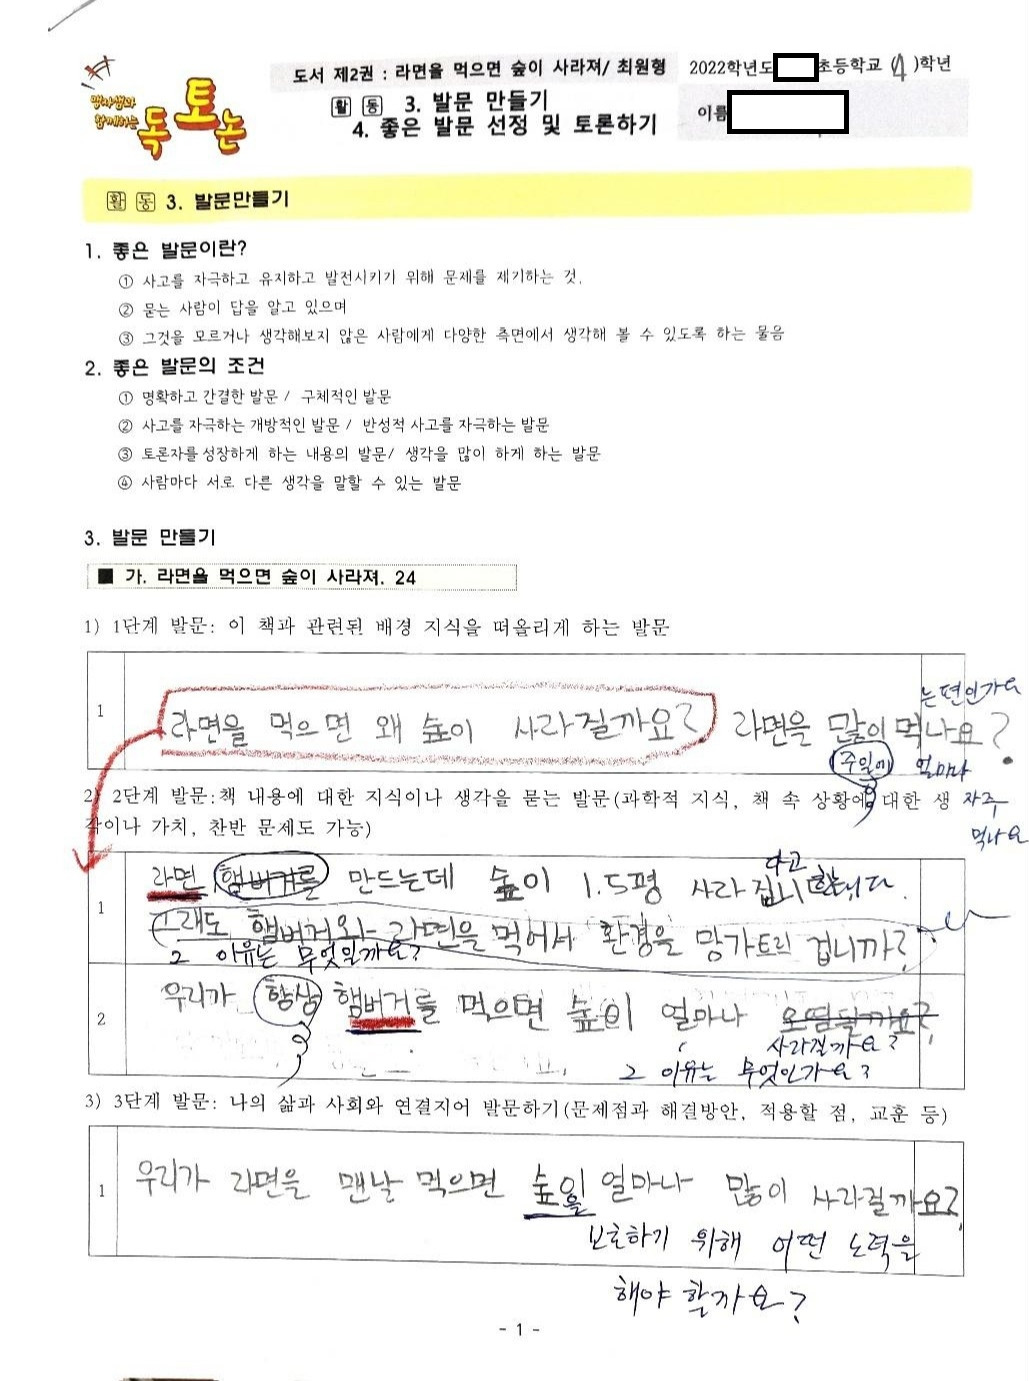 맹자샘과
함께하는
독토논
도서 제2권 : 라면을 먹으면 숲이 사라져/ 최원형
2022학년도 초등학교 (4)학년
활 동 3. 발문 만들기
4. 좋은 발문 선정 및 토론하기
이름
활 동 3. 발문만들기
1. 좋은 발문이란?
① 사고를 자극하고 유지하고 발전시키기 위해 문제를 제기하는 것.
② 묻는 사람이 답을 알고 있으며
③ 그것을 모르거나 생각해보지 않은 사람에게 다양한 측면에서 생각해 볼 수 있도록 하는 물음
2. 좋은 발문의 조건
① 명확하고 간결한 발문 / 구체적인 발문
② 사고를 자극하는 개방적인 발문 / 반성적 사고를 자극하는 발문
③ 토론자를 성장하게 하는 내용의 발문/ 생각을 많이 하게 하는 발문
④ 사람마다 서로 다른 생각을 말할 수 있는 발문
3. 발문 만들기
■ 가. 라면을 먹으면 숲이 사라져. 24
1) 1단계 발문: 이 책과 관련된 배경 지식을 떠올리게 하는 발문
는편인가요
1 라면을 먹으면 왜 숲이 사라질까요? 라면을 많이 먹나요?
주일에 얼마나
자주
먹나요
2) 2단계 발문:책 내용에 대한 지식이나 생각을 묻는 발문(과학적 지식, 책 속 상황에 대한 생
각이나 가치, 찬반 문제도 가능)
다고
1 라면 햄버거를 만드는데 숲이 1.5평 사라집니 합니다.
그래도 햄버거와 라면을 먹어서 환경을 망가트릴 겁니까?
그 이유는 무엇일까요?
2 우리가 항상 햄버거를 먹으면 숲이 얼마나 오염될까요?
사라질까요?
그 이유는 무엇인가요?
3) 3단계 발문: 나의 삶과 사회와 연결지어 발문하기(문제점과 해결방안, 적용할 점, 교훈 등)
1 우리가 라면을 맨날 먹으면 숲이 얼마나 많이 사라질까요?
을
보호하기 위해 어떤 노력을
해야 할까요?
- 1 -